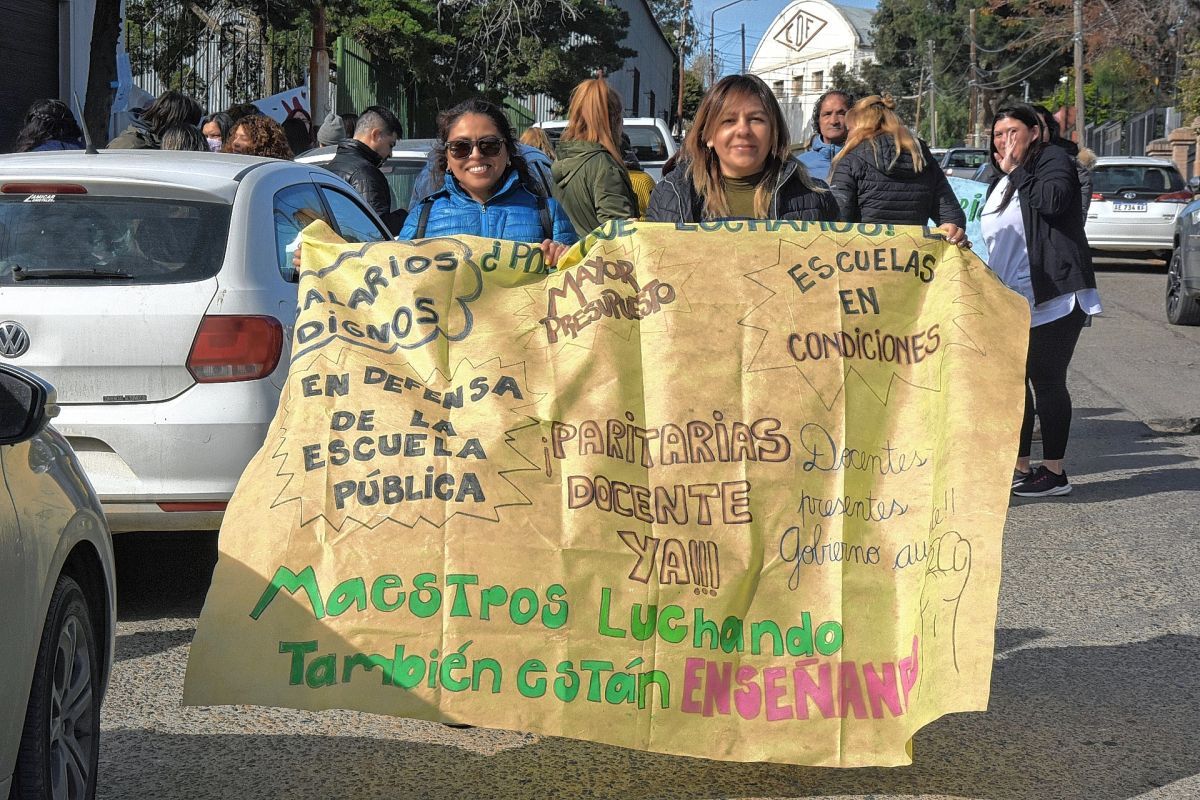 ¿POR QUE LUCHAMOS!
SALARIOS
DIGNOS
MAYOR
PRESUPUESTO
ESCUELAS
EN
CONDICIONES
EN DEFENSA
DE LA
ESCUELA
PÚBLICA
¡PARITARIAS
DOCENTE
YA!!!
Docentes
presentes
Gobierno
MAESTROS LUCHANDO
También están ENSEÑANDO